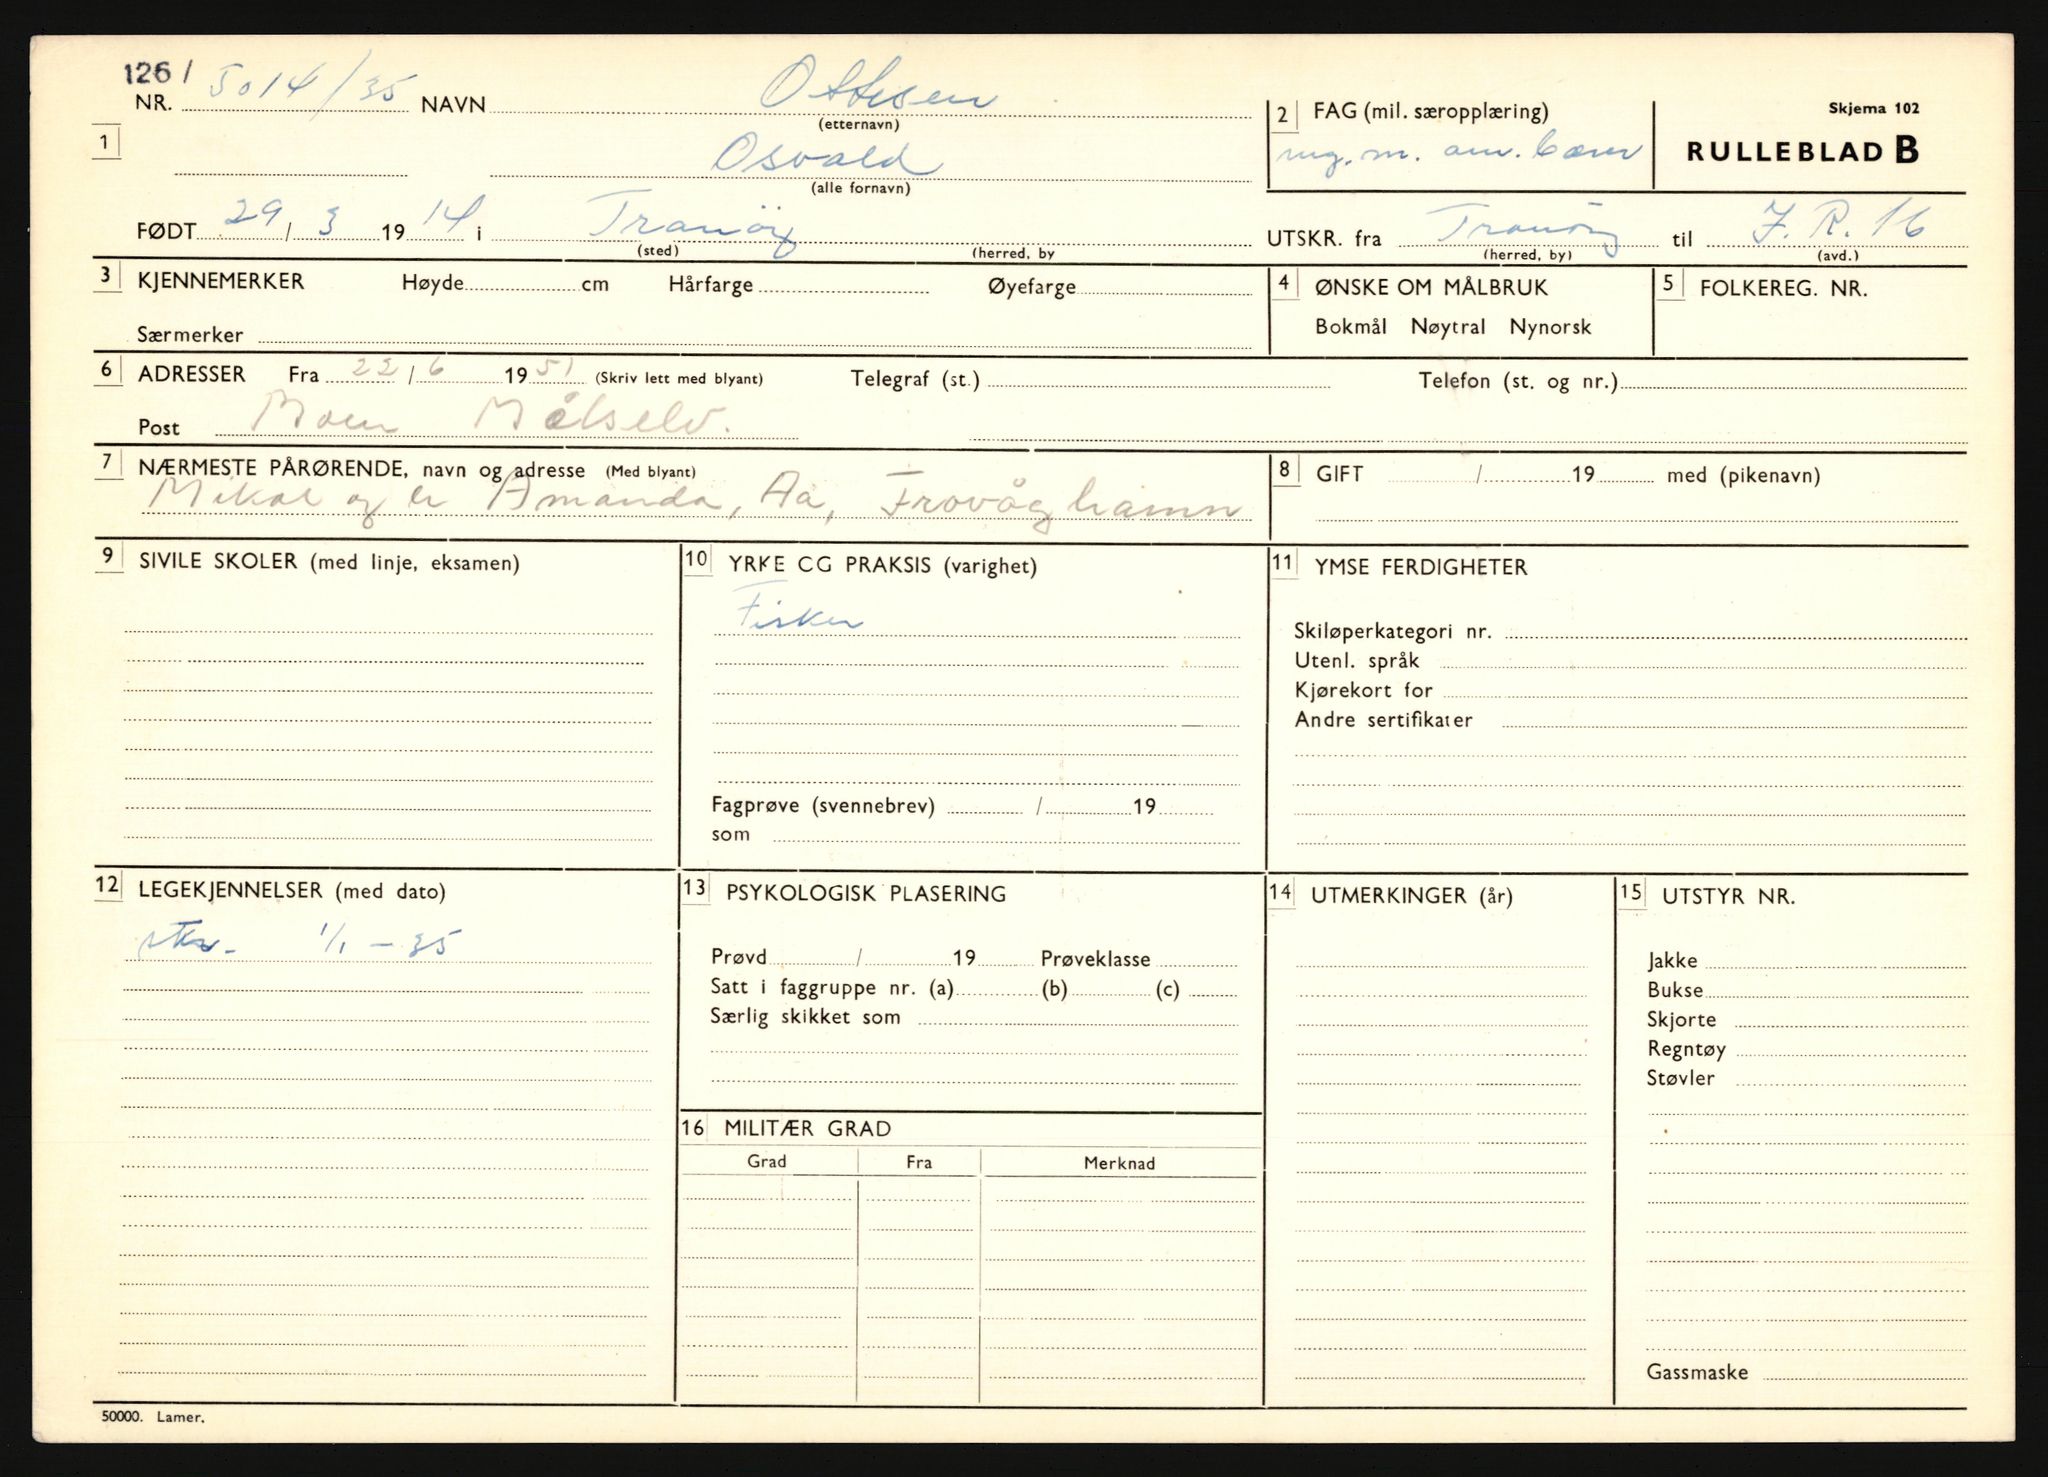 126 / 5014/35
NR. NAVN Ottesen
(etternavn)
1
Osvald
(alle fornavn)
FØDT 29 / 3 1914 i Tranöy
(sted) (herred, by
2 FAG (mil. særopplæring)
m.
Skjema 102
RULLEBLAD B
UTSKR. fra Tranöy til J. R. 16
(herred, by) (avd.)
3 KJENNEMERKER Høyde cm Hårfarge Øyefarge
Særmerker
4 ØNSKE OM MÅLBRUK
Bokmål Nøytral Nynorsk
5 FOLKEREG. NR.
6 ADRESSER Fra 22 / 6 1951 (Skriv lett med blyant) Telegraf (st.) Telefon (st. og nr.)
Post Moen Målselv.
7 NÆRMESTE PÅRØRENDE, navn og adresse (Med blyant)
Mikal og Amanda, Aa, Frovåghamn
8 GIFT / 19 med (pikenavn)
9 SIVILE SKOLER (med linje, eksamen)
10 YRKE CG PRAKSIS (varighet)
Fisker
Fagprøve (svennebrev) / 19
som
11 YMSE FERDIGHETER
Skiløperkategori nr.
Utenl. språk
Kjørekort for
Andre sertifikater
12 LEGEKJENNELSER (med dato)
1/1 - 35
13 PSYKOLOGISK PLASERING
Prøvd / 19 Prøveklasse
Satt i faggruppe nr. (a) (b) (c)
Særlig skikket som
14 UTMERKINGER (år)
15 UTSTYR NR.
Jakke
Bukse
Skjorte
Regntøy
Støvler
Gassmaske
16 MILITÆR GRAD
Grad Fra Merknad
50000. Lamer.